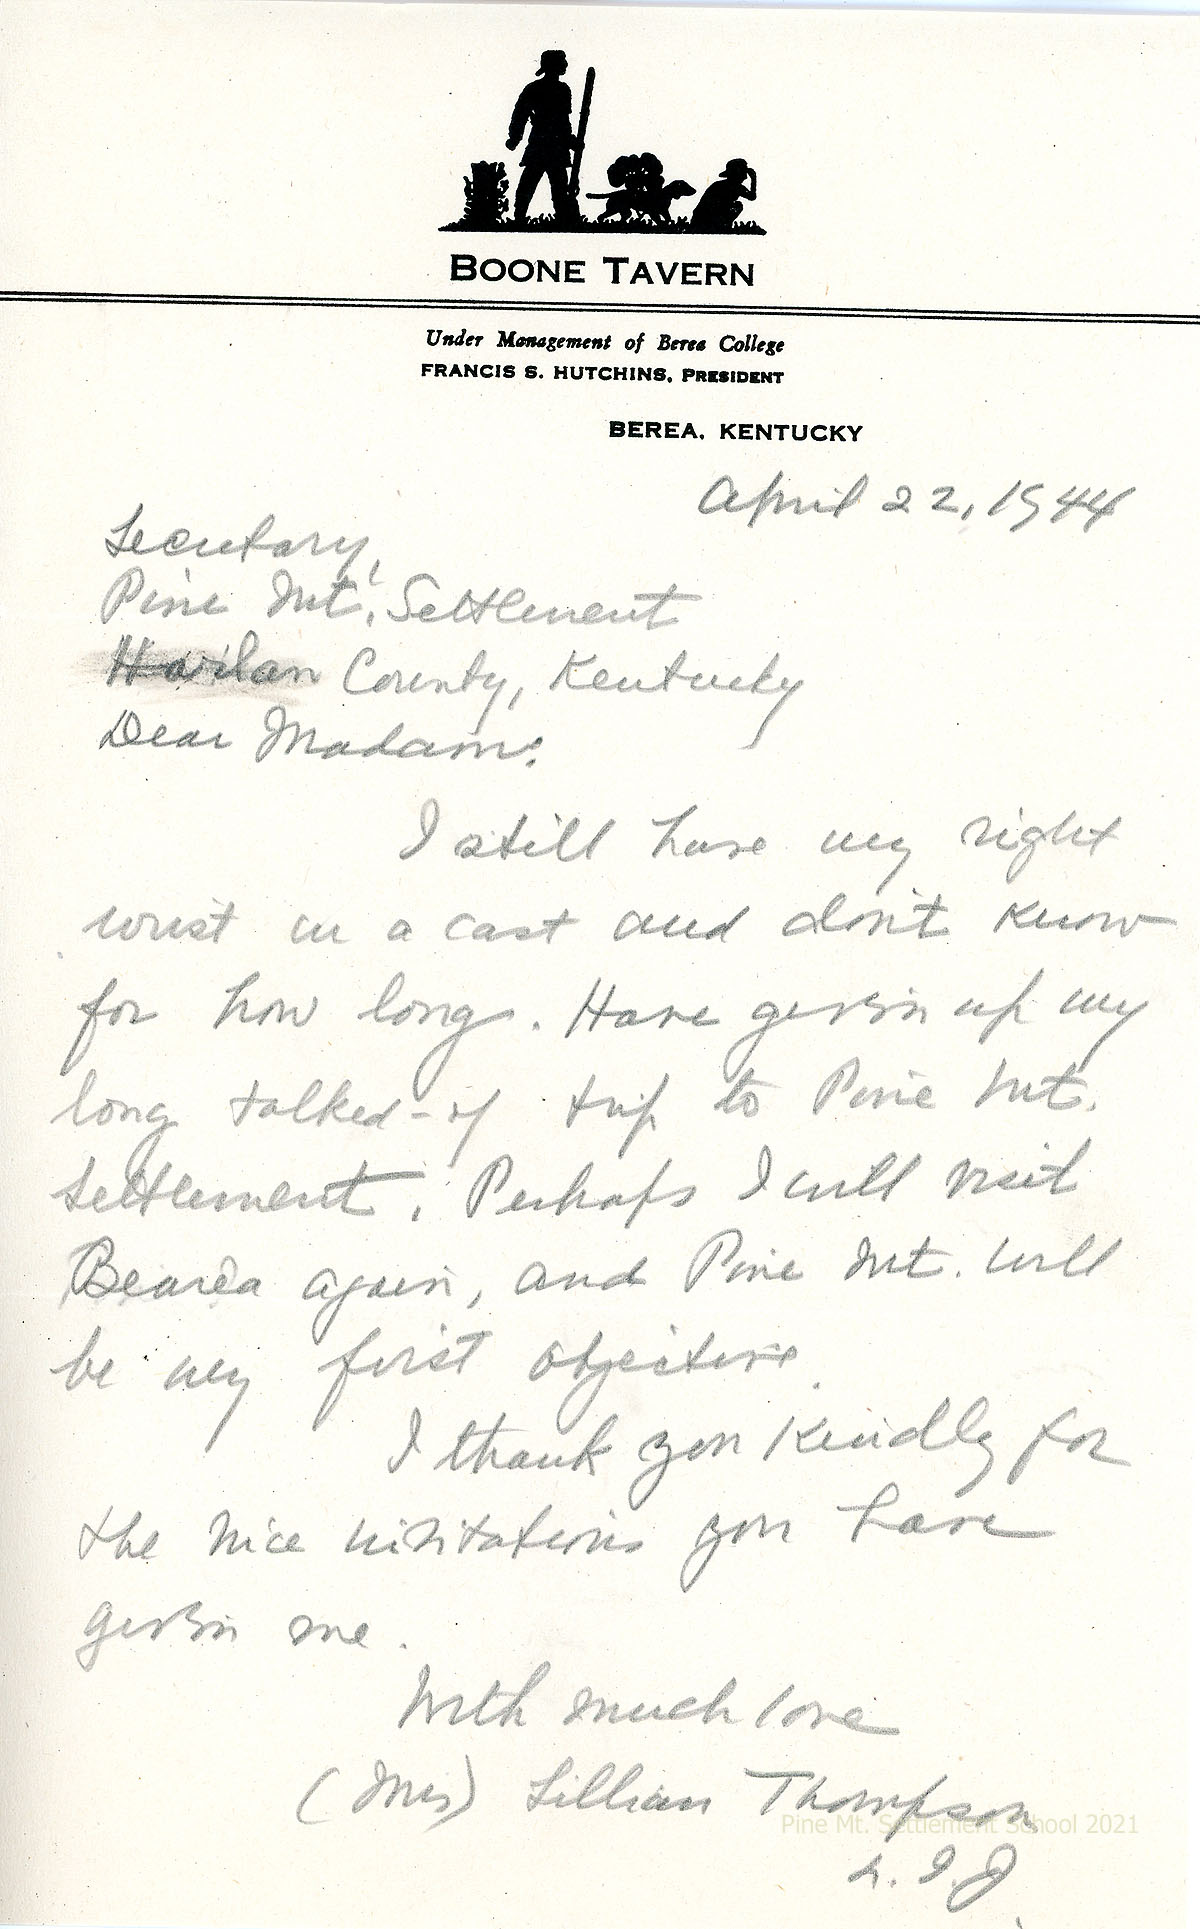 BOONE TAVERN
Under Management of Berea College
FRANCIS S. HUTCHINS, PRESIDENT
BEREA, KENTUCKY
April 22, 1944
Secretary,
Pine Mt. Settlement
Harlan County, Kentucky
Dear Madam:
I still have my right
wrist in a cast and don't know
for how long. Have given up my
long talked-of trip to Pine Mt.
Settlement. Perhaps I will visit
Bearea again, and Pine Mt. will
be my first objective.
I thank you kindly for
the nice invitations you have
given me.
With much love
(Mrs) Lillian Thompson
Pine Mt. Settlement School 2021